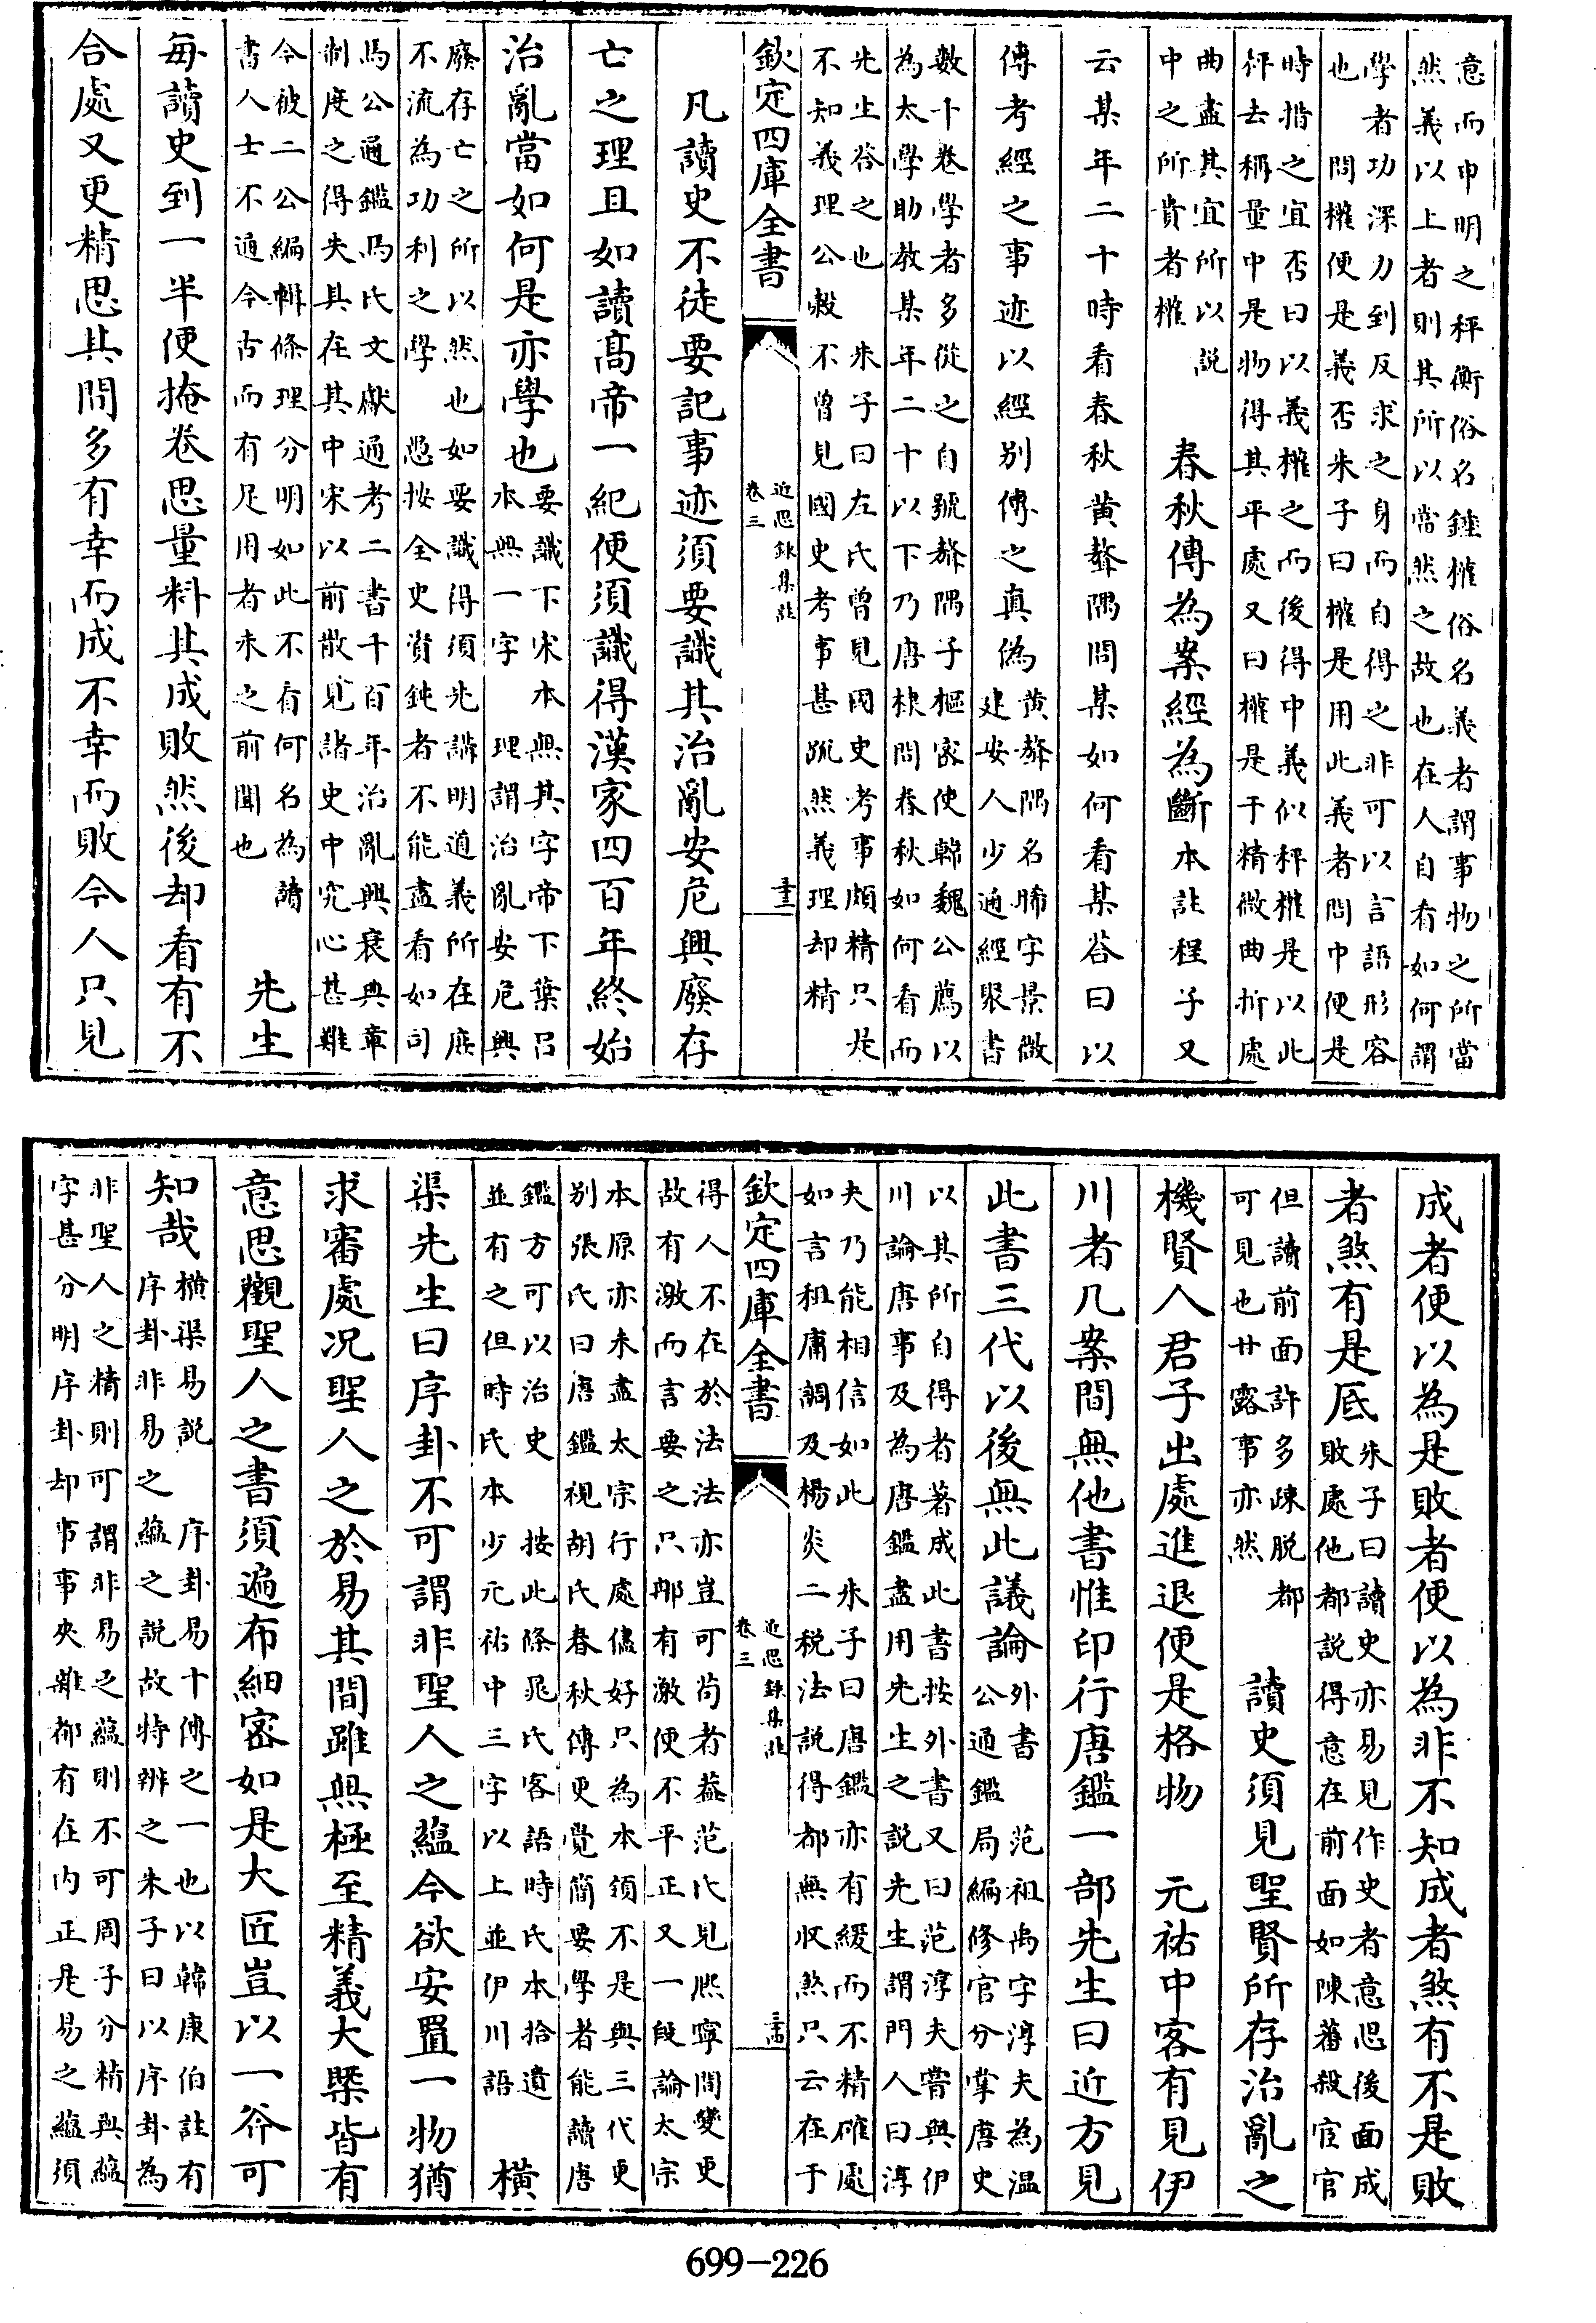 意而申明之秤衡俗名錘權俗名義者謂事物之所當
然義以上者則其所以當然之故也在人自有如何謂
學者功深力到反求之身而自得之非可以言語形容
也 問權便是義否朱子曰權是用此義者問中便是
時措之宜否曰以義權之而後得中義似秤權是以此
秤去稱量中是物得其平處又曰權是于精微曲折處
曲盡其宜所以說
中之所貴者權
春秋傳為案經為斷 本註程子又
云某年二十時看春秋黄聱隅問某如何看某荅曰以
傳考經之事迹以經别傳之真偽
黄聱隅名晞字景微
建安人少通經聚書
數十卷學者多從之自號聱隅子樞密使韓魏公薦以
為太學助教某年二十以下乃唐棣問春秋如何看而
先生荅之也 朱子曰左氏曾見國史考事頗精只是
不知義理公穀不曾見國史考事甚疏然義理却精
欽定四庫全書
近思錄集註
卷三
凡讀史不徒要記事迹須要識其治亂安危興廢存
亡之理且如讀高帝一紀便須識得漢家四百年終始
治亂當如何是亦學也
要識下宋本無其字帝下葉吕
本無一字 理謂治亂安危興
廢存亡之所以然也如要識得須先講明道義所在庶
不流為功利之學 愚按全史資鈍者不能盡看如司
馬公通鑑馬氏文獻通考二書千百年治亂興衰典章
制度之得失具在其中宋以前散見諸史中究心甚難
今被二公編輯條理分明如此不看何名為讀
書人士不通今古而有足用者未之前聞也
先生
每讀史到一半便掩卷思量料其成敗然後却看有不
合處又更精思其間多有幸而成不幸而敗今人只見
成者便以為是敗者便以為非不知成者煞有不是敗
者煞有是底
朱子曰讀史亦易見作史者意思後面成
敗處他都說得意在前面如陳蕃殺宦官
但讀前面許多疎脱都
可見也甘露事亦然
讀史須見聖賢所存治亂之
機賢人君子出處進退便是格物 元祐中客有見伊
川者几案間無他書惟印行唐鑑一部先生曰近方見
此書三代以後無此議論
外書 范祖禹字淳夫為温
公通鑑局編修官分掌唐史
以其所自得者著成此書按外書又曰范淳夫嘗與伊
川論唐事及為唐鑑盡用先生之說先生謂門人曰淳
夫乃能相信如此 朱子曰唐鑑亦有緩而不精確處
如言租庸調及楊炎二税法說得都無收煞只云在于
欽定四庫全書
近思錄集註
卷三
得人不在於法法亦豈可苟者葢范氏見熙寧間變更
故有激而言要之只那有激便不平正又一段論太宗
本原亦未盡太宗行處儘好只為本領不是與三代更
别張氏曰唐鑑視胡氏春秋傳更覺簡要學者能讀唐
鑑方可以治史 按此條晁氏客語時氏本拾遺
並有之但時氏本少元祐中三字以上並伊川語
横
渠先生曰序卦不可謂非聖人之蘊今欲安置一物猶
求審處况聖人之於易其間雖無極至精義大槩皆有
意思觀聖人之書須遍布細密如是大匠豈以一斧可
知哉
横渠易說 序卦易十傳之一也以韓康伯註有
序卦非易之蘊之說故特辨之朱子曰以序卦為
非聖人之精則可謂非易之蘊則不可周子分精與蘊
字甚分明序卦却事事夾雜都有在内正是易之蘊須
699-226